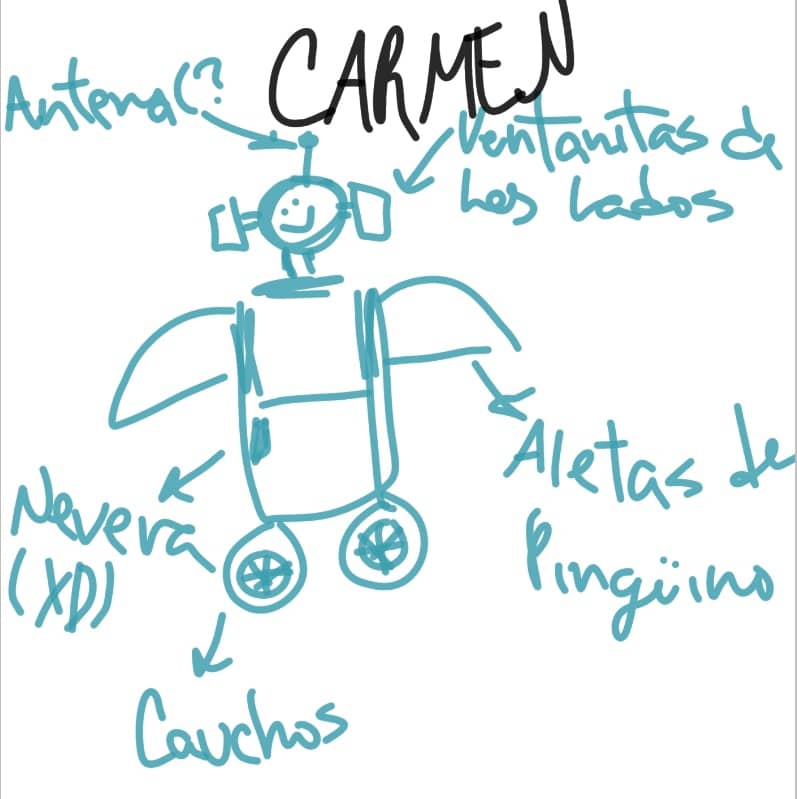 CARMEN
Antena(?
Ventanitas de
Los Lados
Aletas de
Pingüino
Nevera
(XD)
Cauchos